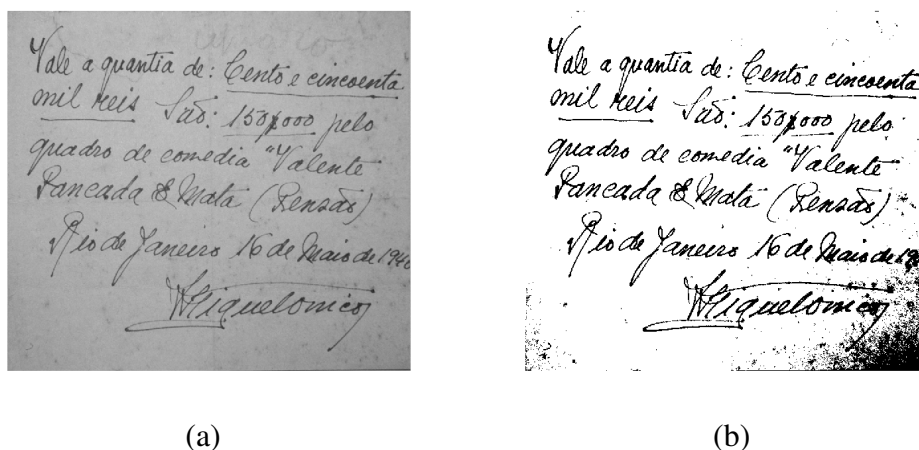 Vale a quantia de: Cento e cincoenta
mil reis São: 150$000 pelo
quadro de comedia "Valente
Pancada & Mata
Rio de Janeiro 16 de Maio de 194
Vale a quantia de: Cento e cincoenta
mil reis São: 150$000 pelo
quadro de comedia "Valente
Pancada & Mata
Rio de Janeiro 16 de Maio de 19
(a)
(b)